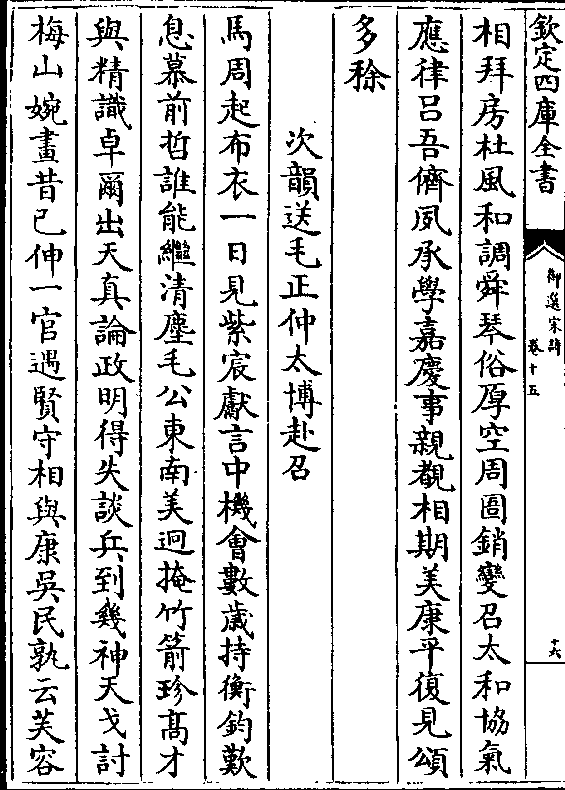 欽定四庫全書
御選宋詩
卷十五
十六
相拜房杜風和調舜琴俗厚空周圄銷變召太和協氣
應律呂吾儕夙承學嘉慶事親覩相期美康平復見頌
多稌
次韻送毛正仲太博赴召
馬周起布衣一日見紫宸獻言中機會數歲持衡鈞歎
息慕前哲誰能繼清塵毛公東南美迥掩竹箭珍髙才
與精識卓爾出天真論政明得失談兵到幾神天戈討
梅山婉畫昔已伸一官遇賢守相與康吳民孰云芙容